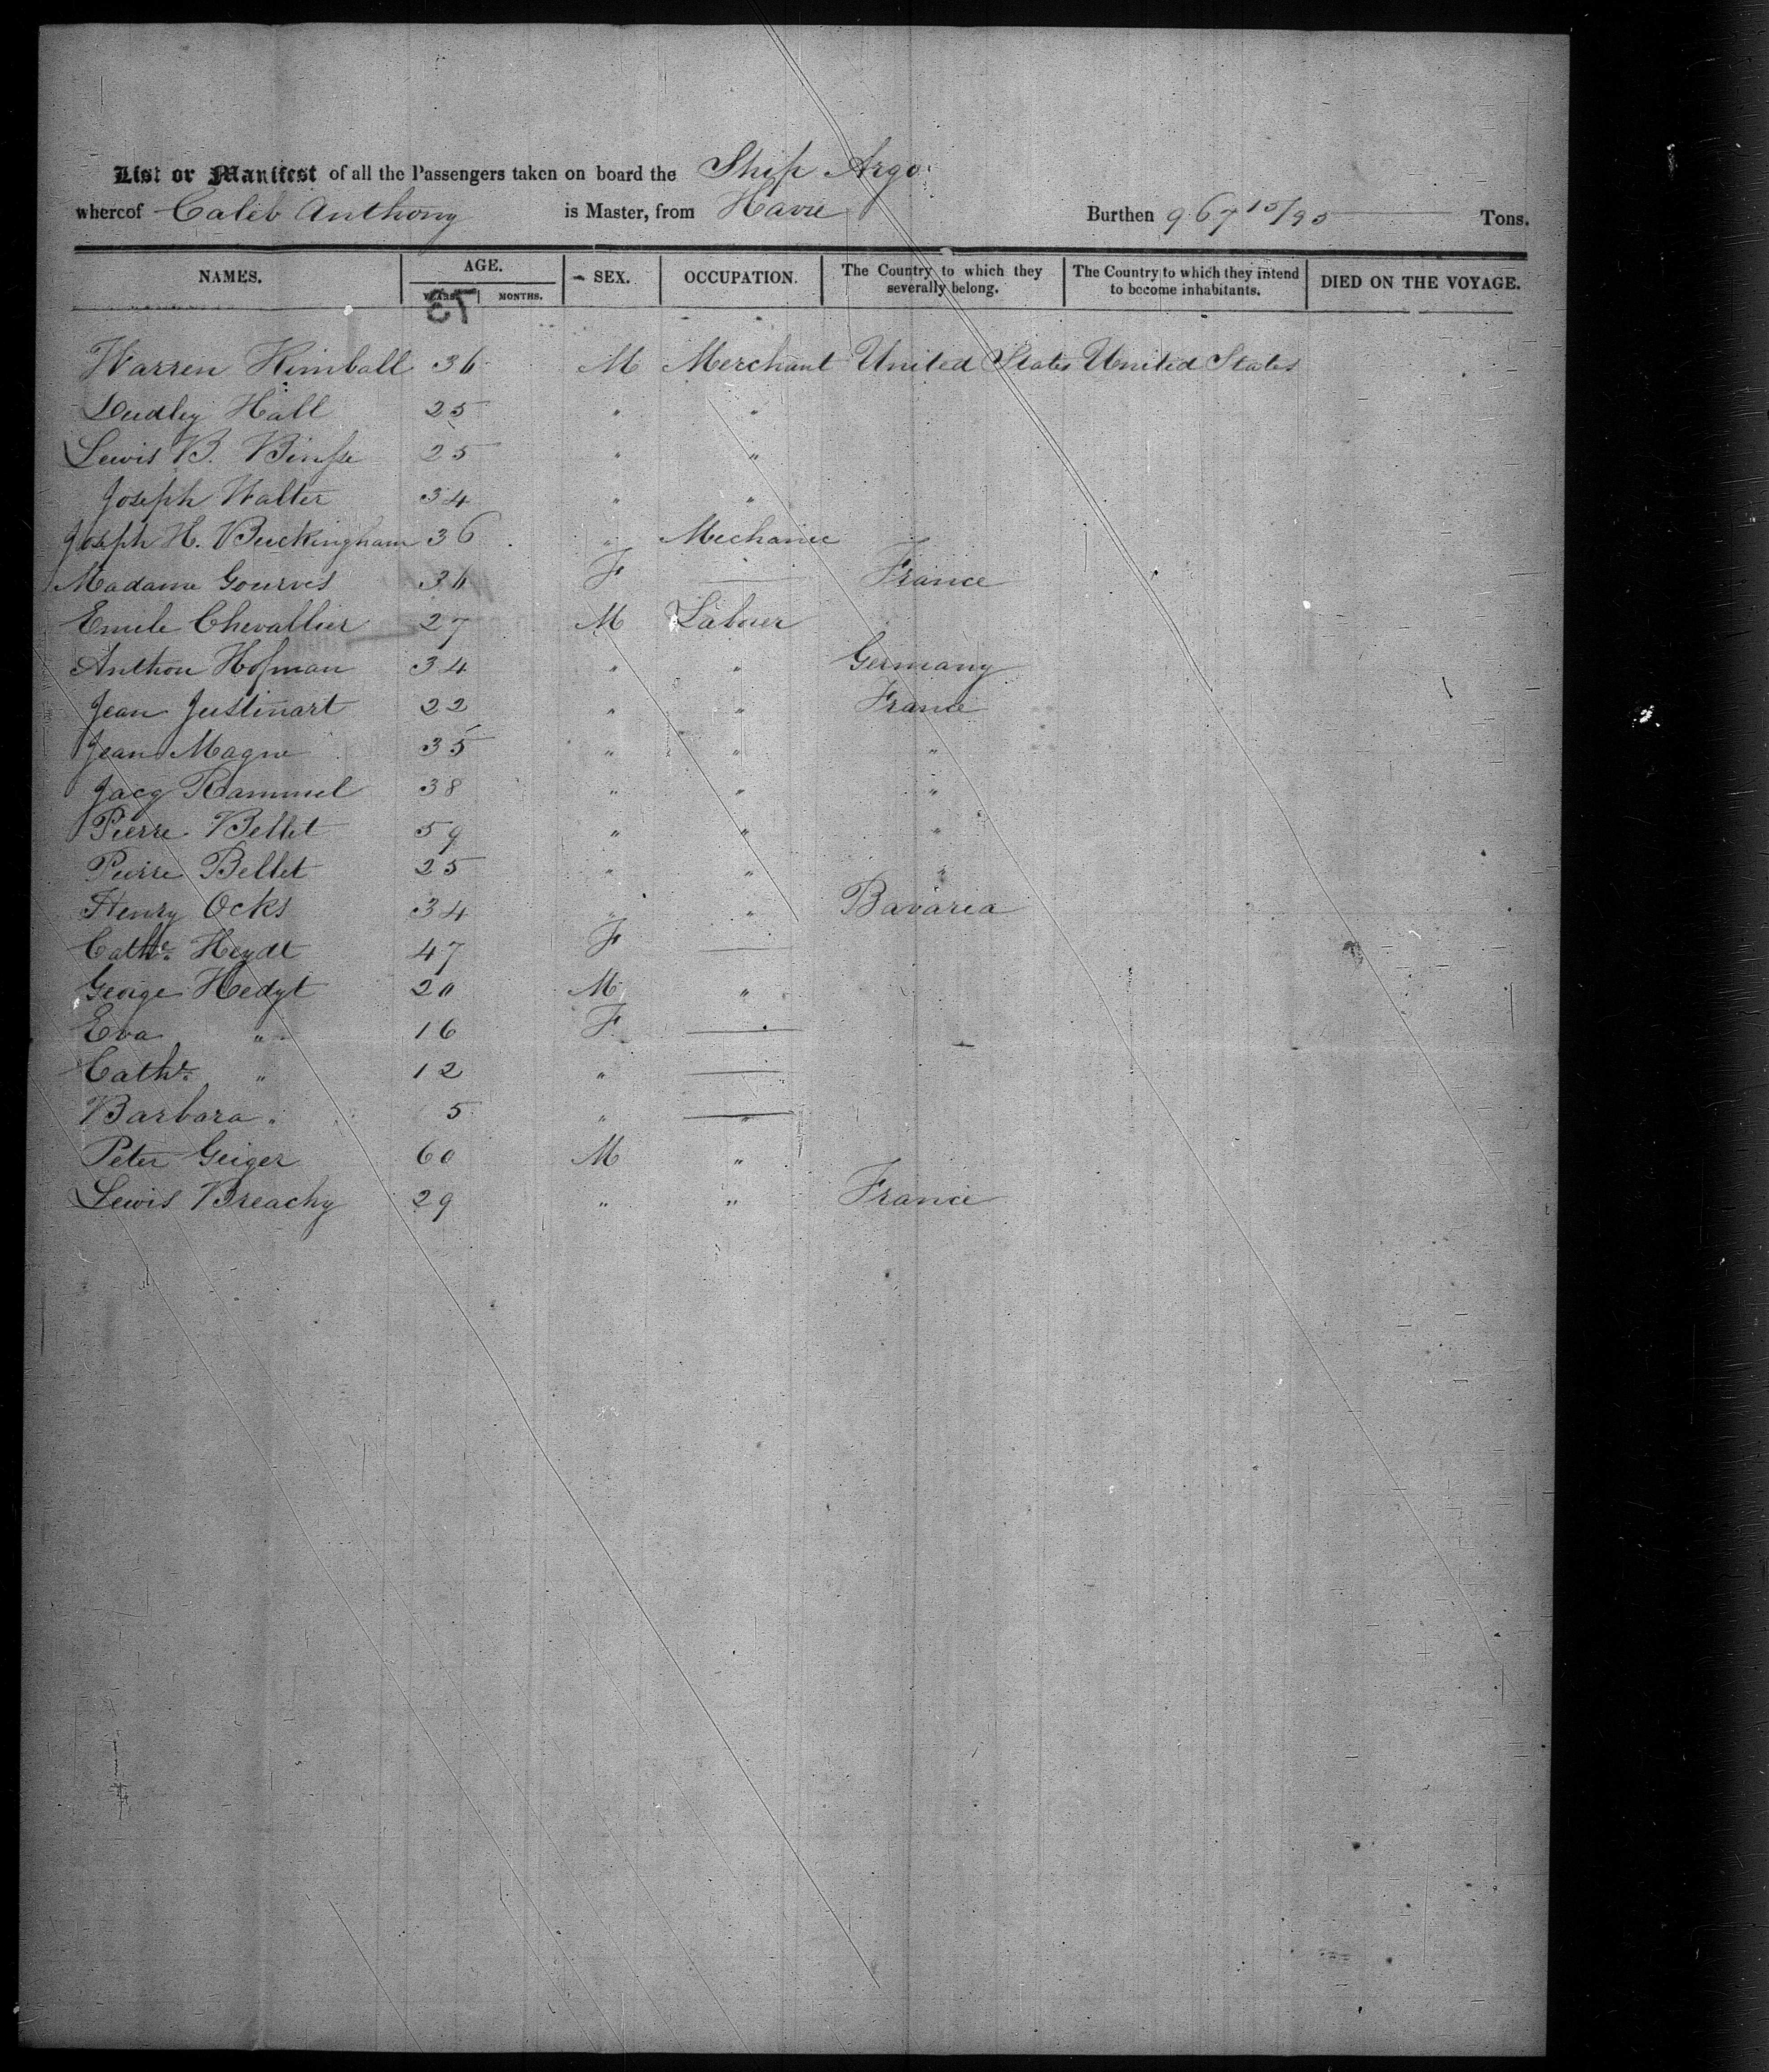 List or Manifest of all the Passengers taken on board the Ship Argo
whereof Caleb Anthony is Master, from Havre Burthen 967 15/95 Tons.
NAMES. AGE. SEX. OCCUPATION. The Country to which they severally belong. The Country to which they intend to become inhabitants. DIED ON THE VOYAGE.
YEARS. MONTHS.
Warren Kimball 36 M Merchant United States United States
Dudley Hall 25 " "
Lewis B. Binsse 25 " "
Joseph Walter 34 " "
Joseph H. Buckingham 36 " Mechanic
Madame Gourves 36 F — France
Emile Chevallier 27 M Labouer
Anthon Hofman 34 " " Germany
Jean Justinart 22 " " France
Jean Magne 35 " " "
Jacq Rammel 38 " " "
Pierre Bellet 59 " " "
Pierre Bellet 25 " " "
Henry Ocks 34 " " Bavaria
Cathe. Heydt 47 F —
George Hedyt 20 M "
Eva " 16 F —
Cathe. " 12 " —
Barbara " 5 " —
Peter Geiger 60 M "
Lewis Breachy 29 " " France